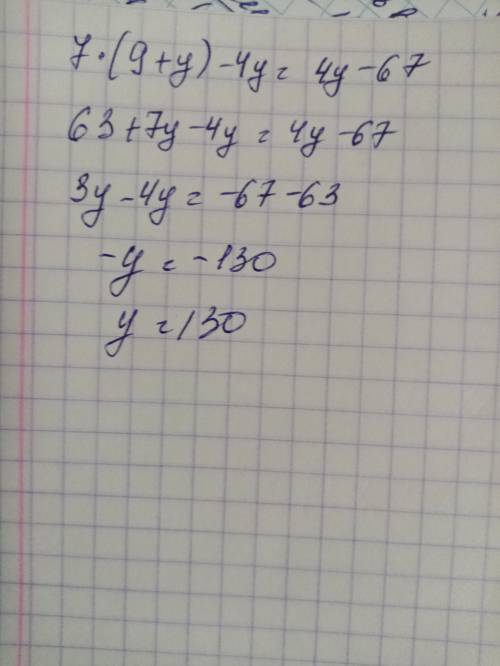 7·(9+y)-4y= 4y-67
63+7y-4y=4y-67
3y-4y=-67-63
-y=-130
y=130